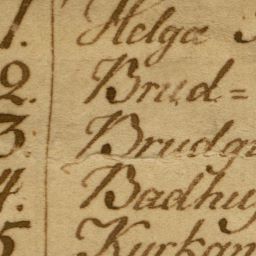 1. Helga
2. Brud=
3. Brudg
4. Badhu
5 Kyrkan